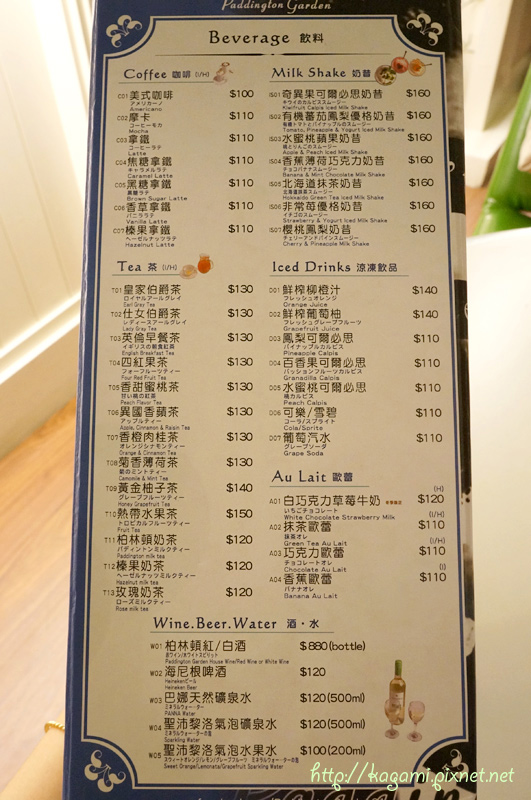 Paddington Garden
Beverage 飲料
Coffee 咖啡 (I/H)
C01 美式咖啡 $100
アメリカーノ
Americano
C02 摩卡 $110
コーヒーモカ
Mocha
C03 拿鐵 $110
コーヒーラテ
Latte
C04 焦糖拿鐵 $110
キャラメルラテ
Caramel Latte
C05 黑糖拿鐵 $110
黒糖ラテ
Brown Sugar Latte
C06 香草拿鐵 $110
バニララテ
Vanilla Latte
C07 榛果拿鐵 $110
ヘーゼルナッツラテ
Hazelnut Latte
Tea 茶 (I/H)
T01 皇家伯爵茶 $130
ロイヤルアールグレイ
Earl Gray Tea
T02 仕女伯爵茶 $130
レディースアールグレイ
Lady Gray Tea
T03 英倫早餐茶 $130
イギリスの朝食紅茶
English Breakfast Tea
T04 四紅果茶 $130
フォーフルーツティー
Four Red Fruit Tea
T05 香甜蜜桃茶 $130
甘い桃の紅茶
Peach Flavor Tea
T06 異國香蘋茶 $130
アップルティー
Apple, Cinnamon & Raisin Tea
T07 香橙肉桂茶 $130
オレンジシナモンティー
Orange & Cinnamon Tea
T08 菊香薄荷茶 $130
菊のミントティー
Camomile & Mint Tea
T09 黃金柚子茶 $140
グレープフルーツティー
Honey Grapefruit Tea
T10 熱帶水果茶 $150
トロピカルフルーツティー
Fruit Tea
T11 柏林頓奶茶 $120
パディントンミルクティー
Paddington milk tea
T12 榛果奶茶 $120
ヘーゼルナッツミルクティー
Hazelnut milk tea
T13 玫瑰奶茶 $120
ローズミルクティー
Rose milk tea
Milk Shake 奶昔
IS01 奇異果可爾必思奶昔 $160
キウイのカルピススムージー
Kiwifruit Calpis Iced Milk Shake
IS02 有機蕃茄鳳梨優格奶昔 $160
有機トマトとパイナップルのスムージー
Tomato, Pineapple & Yogurt Iced Milk Shake
IS03 水蜜桃蘋果奶昔 $160
桃とりんごのスムージー
Apple & Peach Iced Milk Shake
IS04 香蕉薄荷巧克力奶昔 $160
チョコバナナスムージー
Banana & Mint Chocolate Milk Shake
IS05 北海道抹茶奶昔 $160
北海道抹茶スムージー
Hokkaido Green Tea Iced Milk Shake
IS06 非常莓優格奶昔 $160
イチゴのスムージー
Strawberry & Yogurt Iced Milk Shake
IS07 櫻桃鳳梨奶昔 $160
チェリーアンドパインスムージー
Cherry & Pineapple Milk Shake
Iced Drinks 涼凍飲品
D01 鮮榨柳橙汁 $140
フレッシュオレンジ
Orange Juice
D02 鮮榨葡萄柚 $140
フレッシュグレープフルーツ
Grapefruit Juice
D03 鳳梨可爾必思 $110
パイナップルカルピス
Pineapple Calpis
D04 百香果可爾必思 $110
パッションフルーツカルピス
Granadilla Calpis
D05 水蜜桃可爾必思 $110
桃カルピス
Peach Calpis
D06 可樂/雪碧 $110
コーラ/スプライト
Cola/Sprite
D07 葡萄汽水 $110
グレープソーダ
Grape Soda
Au Lait 歐蕾
(H)
A01 白巧克力草莓牛奶 $120
いちごチョコレート
White Chocolate Strawberry Milk (I/H)
A02 抹茶歐蕾 $110
抹茶オレ
Green Tea Au Lait (I/H)
A03 巧克力歐蕾 $110
チョコレートオレ
Chocolate Au Lait (I)
A04 香蕉歐蕾 $110
バナナオレ
Banana Au Lait
Wine.Beer.Water 酒・水
W01 柏林頓紅/白酒 $880(bottle)
赤ワイン/ホワイトスピリット
Paddington Garden House Wine/Red Wine or White Wine
W02 海尼根啤酒 $120
Heinekenビール
Heineken Beer
W03 巴娜天然礦泉水 $120(500ml)
ミネラルウォーター
PANNA Water
W04 聖沛黎洛氣泡礦泉水 $120(500ml)
ミネラルウォーターの泡
Sparkling Water
W05 聖沛黎洛氣泡水果水 $100(200ml)
スウィートオレンジ/レモン/グレープフルーツ ミネラルウォーターの泡
Sweet Orange/Lemonata/Grapefruit Sparkling Water
http://kagami.pixnet.net